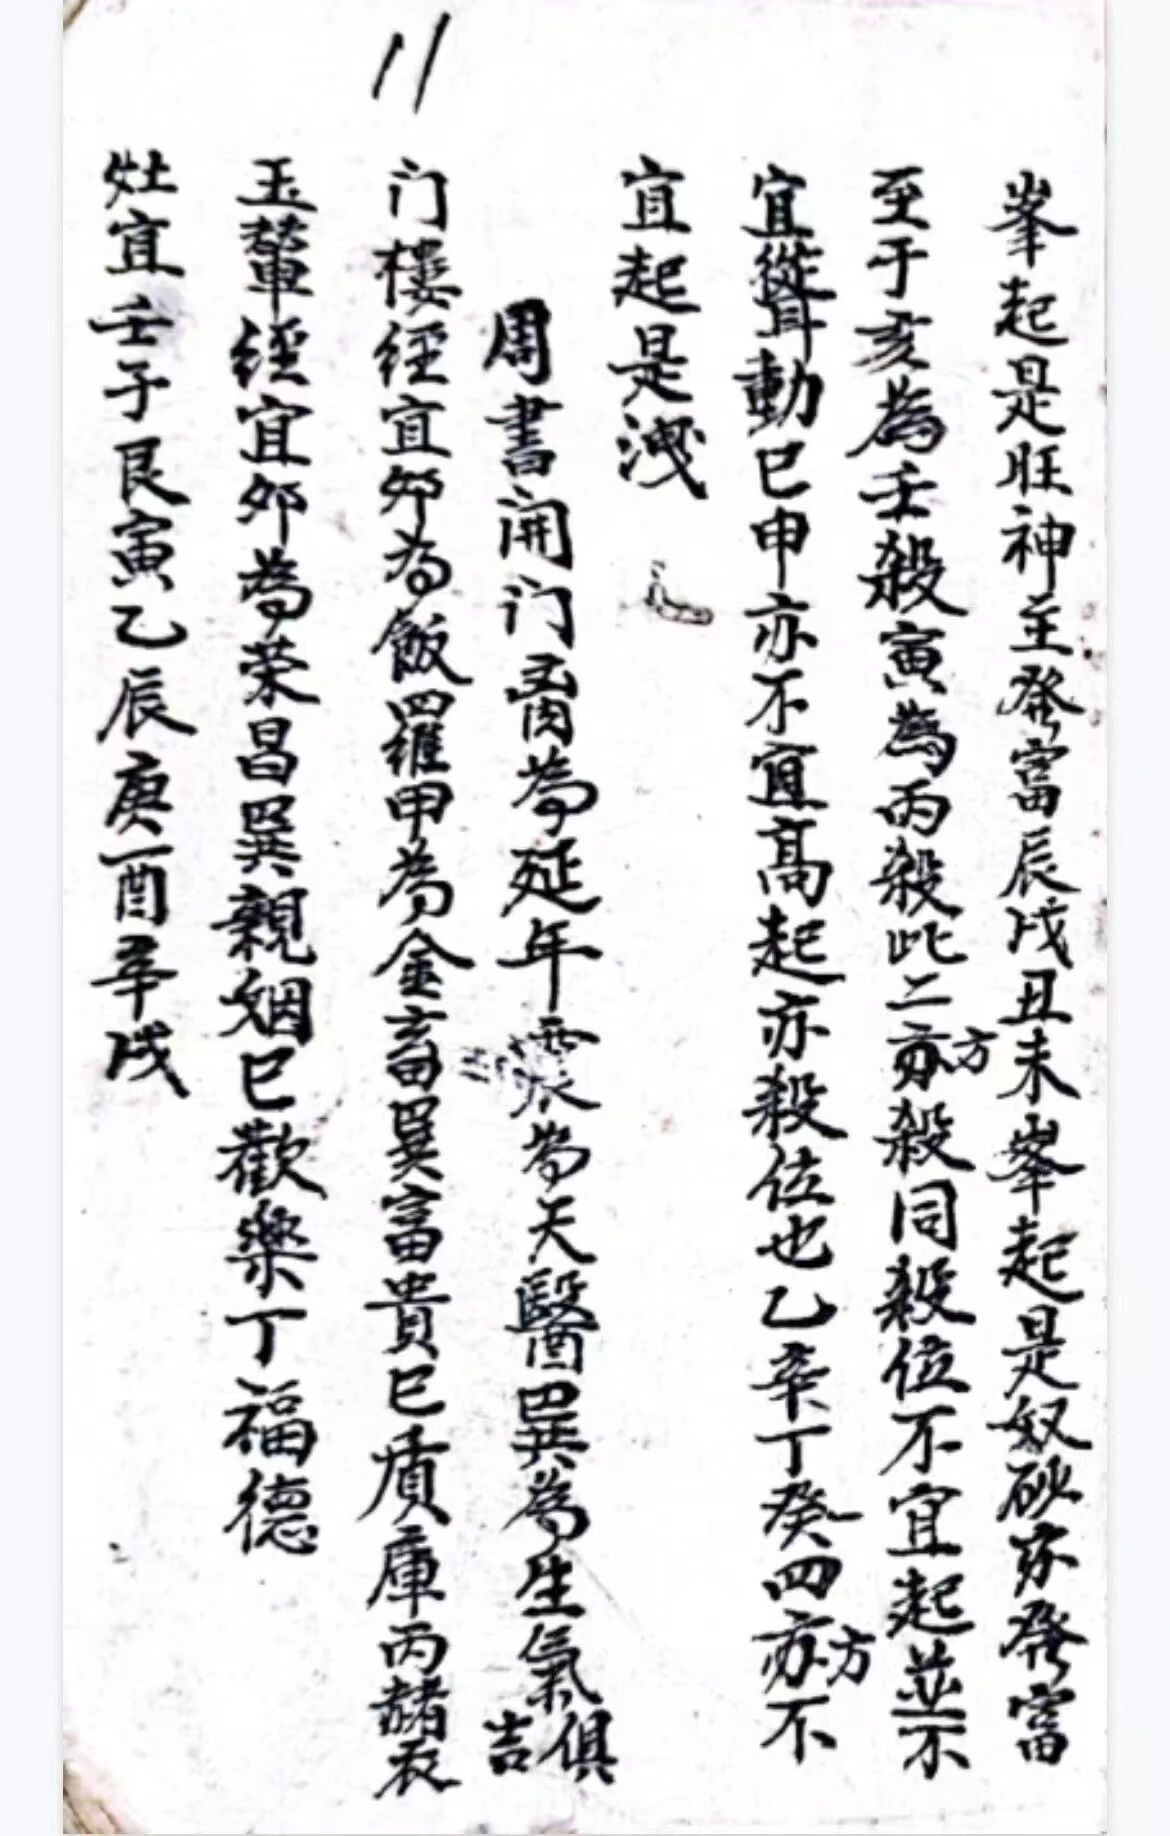 11
峯起是旺神主發富辰戌丑未峯起是奴砂亦發富
至于亥為壬殺寅為丙殺此二亦方殺同殺位不宜起並不
宜聳動巳申亦不宜高起亦殺位也乙辛丁癸四亦方不
宜起是洩
周書開门酉為延年震為天醫巽為生氣俱吉
门樓經宜卯為飯羅甲為金畜巽富貴巳質庫丙赭衣
玉輦經宜卯為荣昌巽親姻巳歡樂丁福德
灶宜壬子艮寅乙辰庚酉辛戌